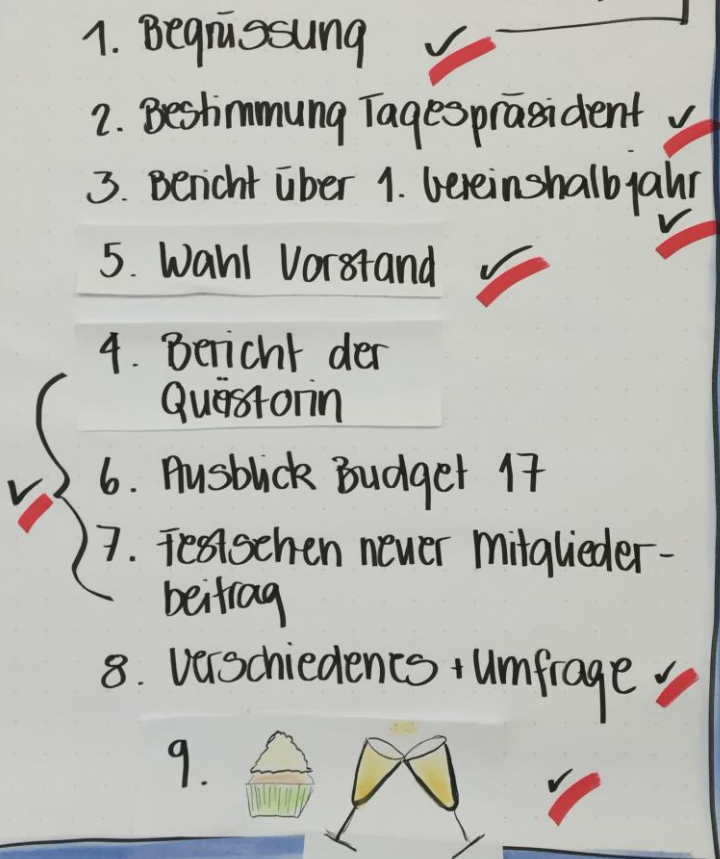 1. Begrüssung
2. Bestimmung Tagespräsident
3. Bericht über 1. Vereinshalbjahr
5. Wahl Vorstand
4. Bericht der
Quästorin
6. Ausblick Budget 17
7. Festsehen neuer Mitglieder-
beitrag
8. Verschiedenes + Umfrage
9.